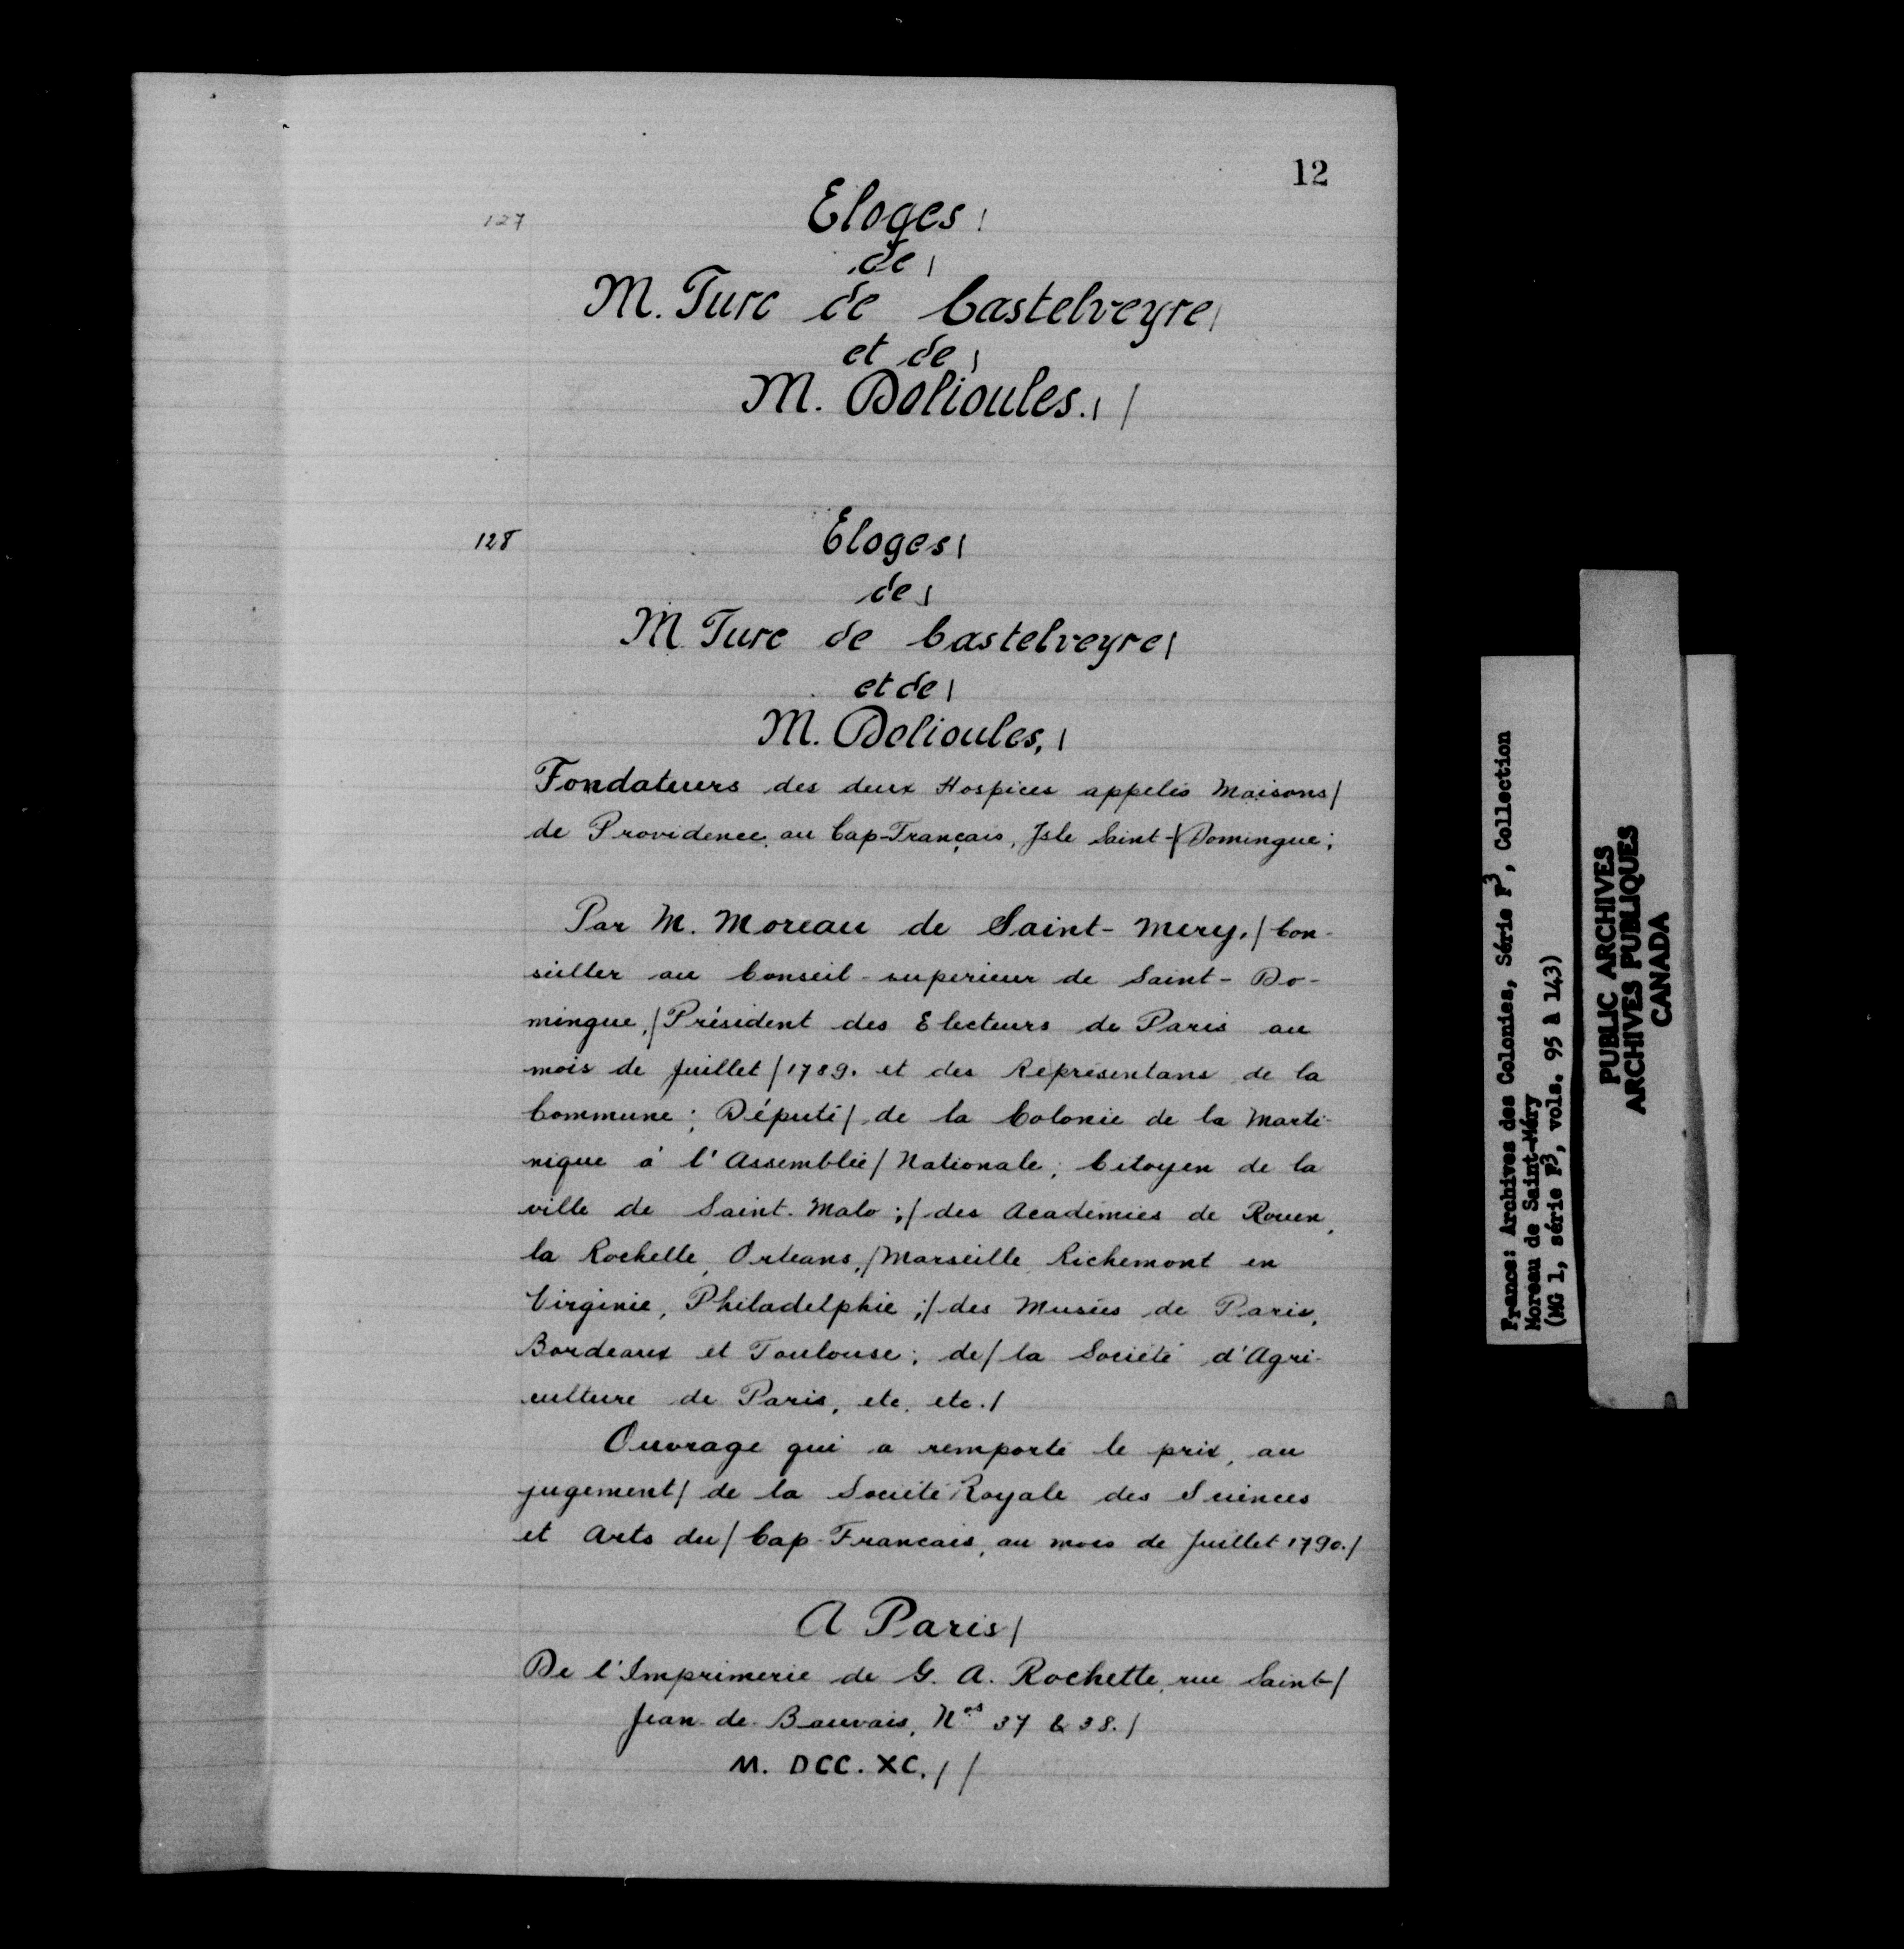 12
127
Eloges/
de/
M. Turc de Castelveyre/
et de/
M. Dolioules./ /
128
Eloges/
de/
M Turc de Castelveyre/
et de/
M. Dolioules,/
Fondateurs des deux Hospices appelés Maisons/
de Providence, au Cap-Français, Isle Saint-/Domingue;
Par M. Moreau de Saint-Mery,/Con-
seiller au Conseil-superieur de Saint-Do-
mingue,/Président des Electeurs de Paris au
mois de Juillet/1789. et des Représentans de la
Commune; Député/de la Colonie de la Marti-
nique à l'Assemblée/Nationale; Citoyen de la
ville de Saint-Malo;/des Académies de Rouen,
la Rochelle, Orleans,/Marseille Richemont en
Virginie, Philadelphie;/des Musées de Paris,
Bordeaux et Toulouse; de/la Société d'Agri-
culture de Paris, etc. etc./
Ouvrage qui a remporté le prix, au
jugement/de la Société Royale des Sciences
et Arts du/Cap-Francais, au mois de Juillet 1790./
A Paris/
De l'Imprimerie de G. A. Rochette, rue Saint-/
Jean-de-Bauvais, Nos 37 & 38./
M. DCC. XC. / /
France: Archives des Colonies, Série F3, Collection
Moreau de Saint-Méry
(MG 1, série F3, vols. 95 à 143)
PUBLIC ARCHIVES
ARCHIVES PUBLIQUES
CANADA